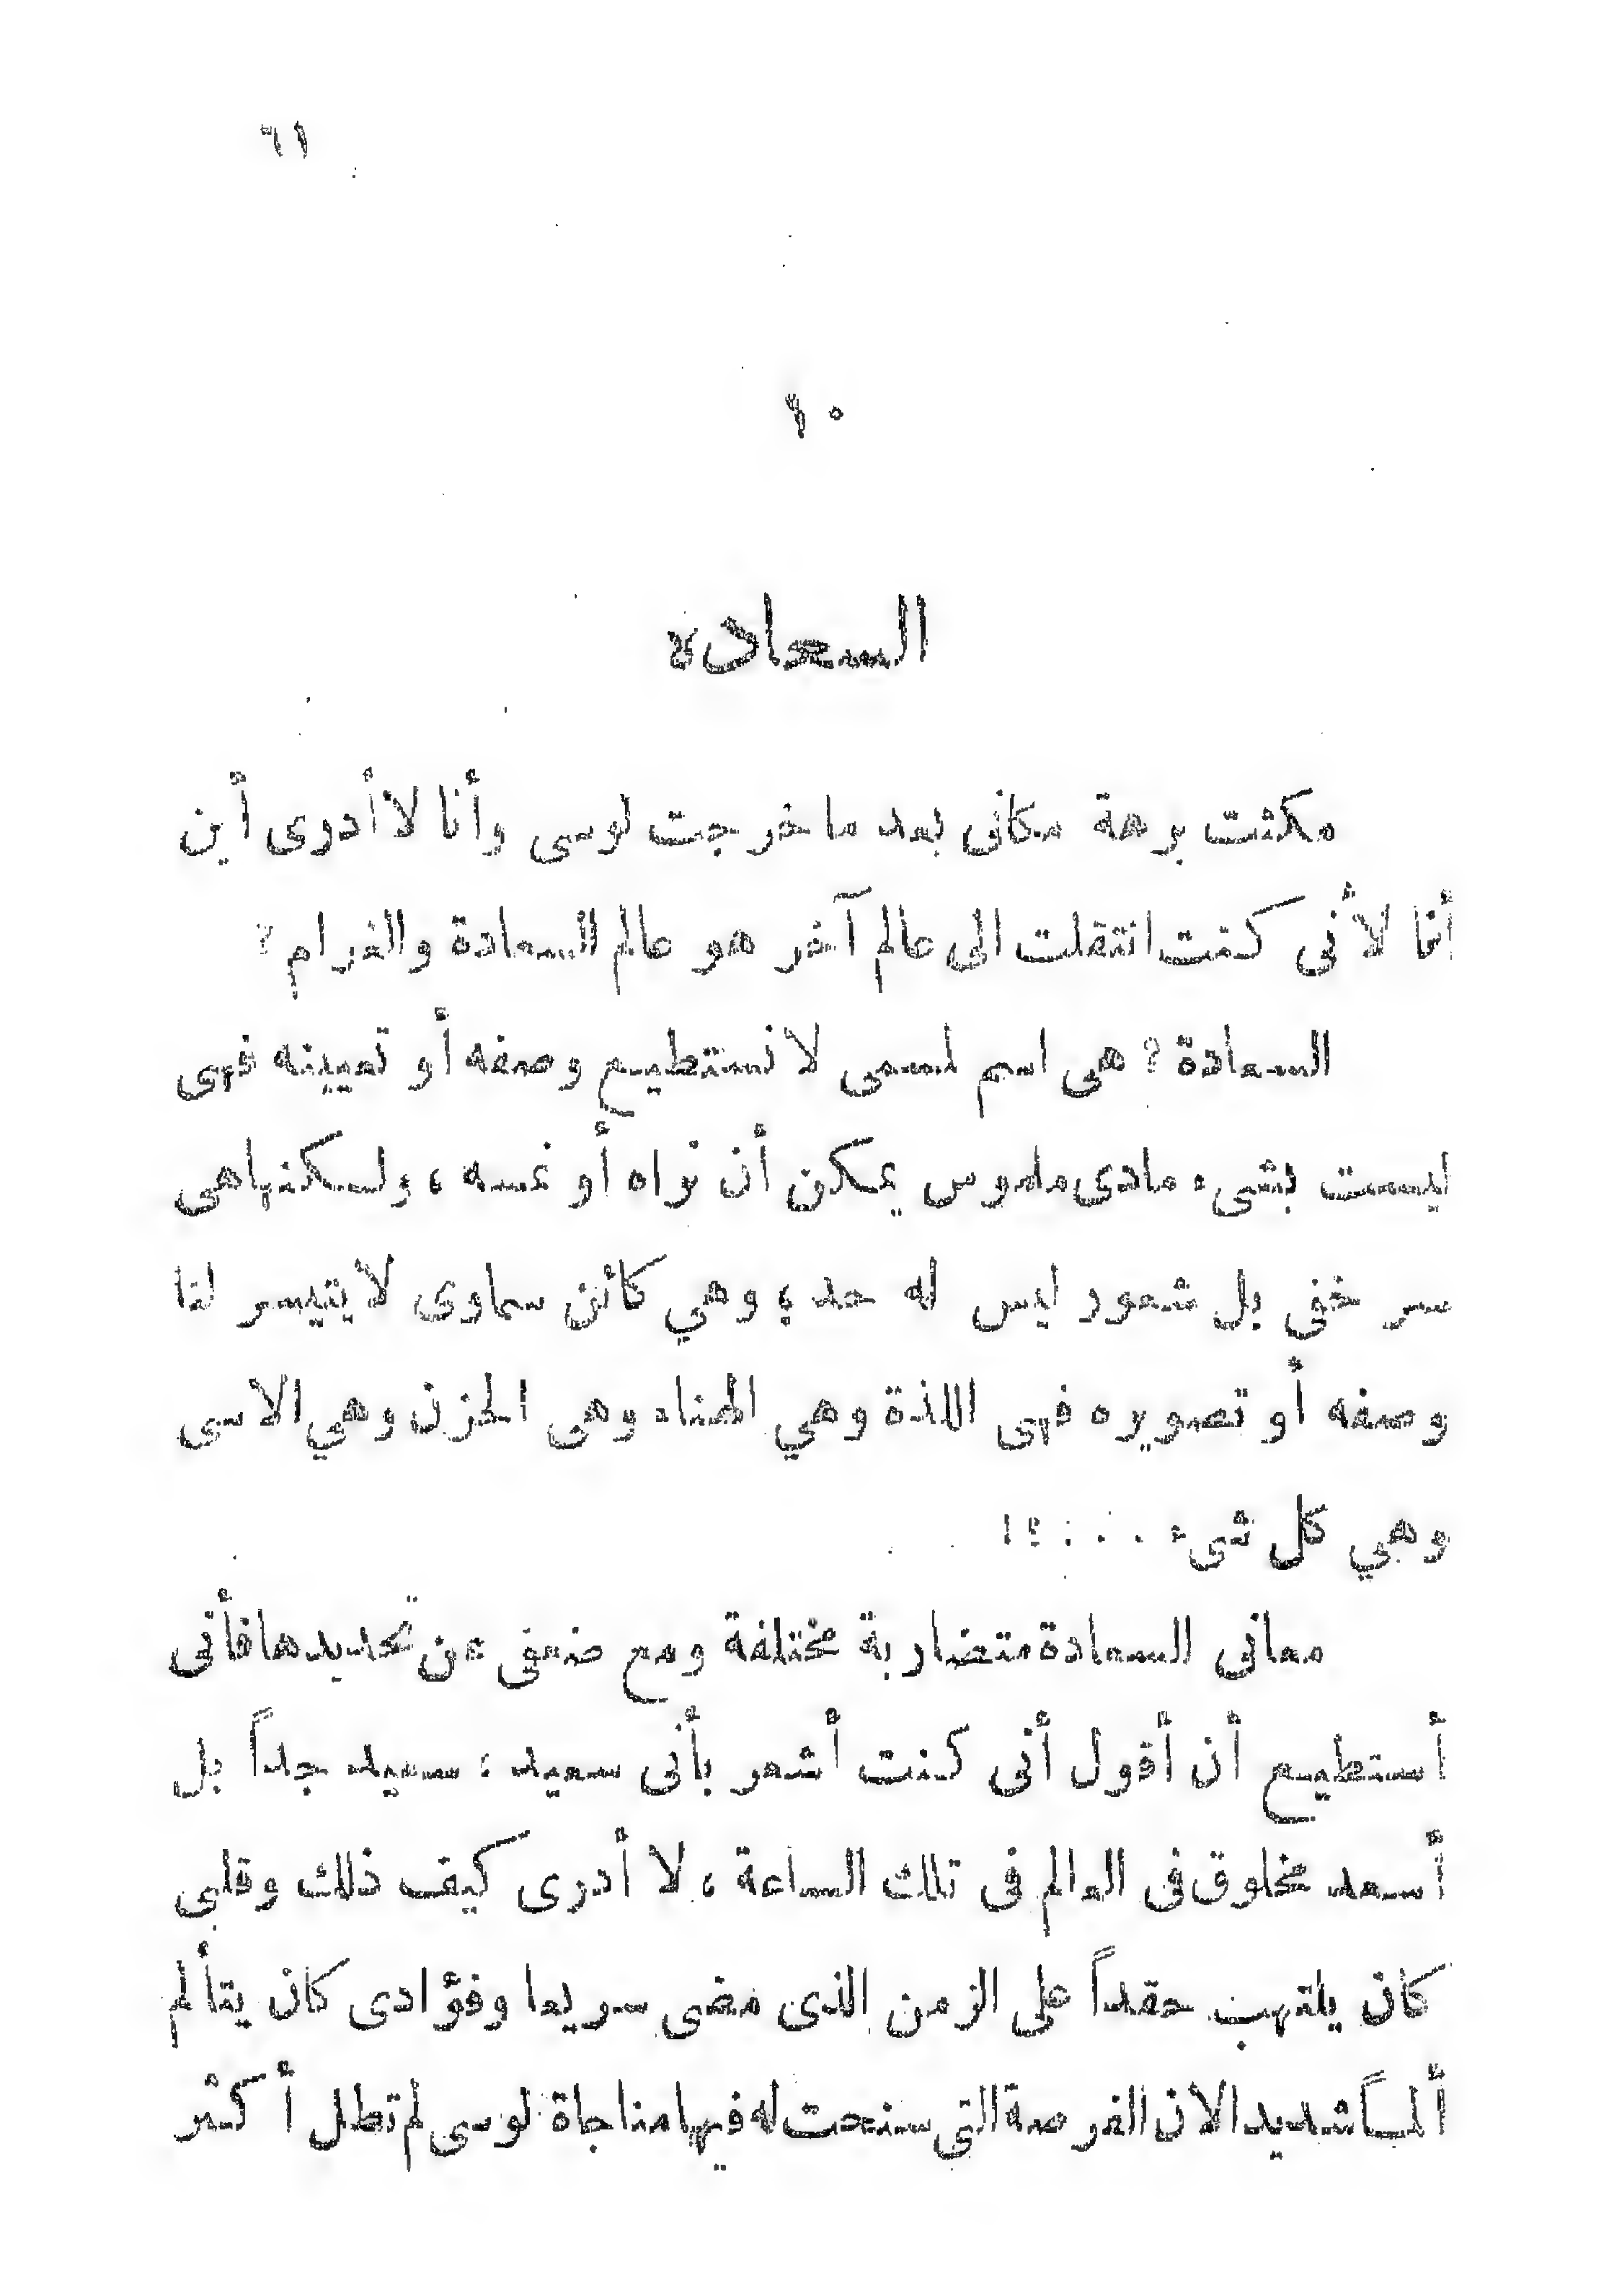 ٦١
١٠
السعادة
مكثت برهة مكانى بعد ما خرجت لوسى وأنا لا أدرى أين
أنا لأنى كنت انتقلت الى عالم آخر هو عالم السعادة والغرام ؟
السعادة ؟ هى اسم لمسمى لا نستطيع وصفه أو تعيينه فهى
ليست بشىء مادى ملموس يمكن أن نراه أو نمسه ، ولكنها هى
سر خفى بل شعور ليس له حد ؛ وهي كائن سماوى لا يتيسر لنا
وصفه أو تصويره فهى اللذة وهي الهناء وهى الحزن وهي الاسى
وهي كل شىء . . . . ؟ !
معانى السعادة متضاربة مختلفة ومع ضعفى عن تحديدها فأنى
أستطيع أن أقول أنى كنت أشعر بأنى سعيد ؛ سعيد جداً بل
أسعد مخلوق فى العالم فى تلك الساعة ، لا أدرى كيف ذلك وقلبى
كان يلتهب حقداً على الزمن الذى مضى سريعا وفؤادى كان يتألم
ألماً شديدا لان الفرصة التى سنحت له فيها مناجاة لوسى لم تطل أكثر